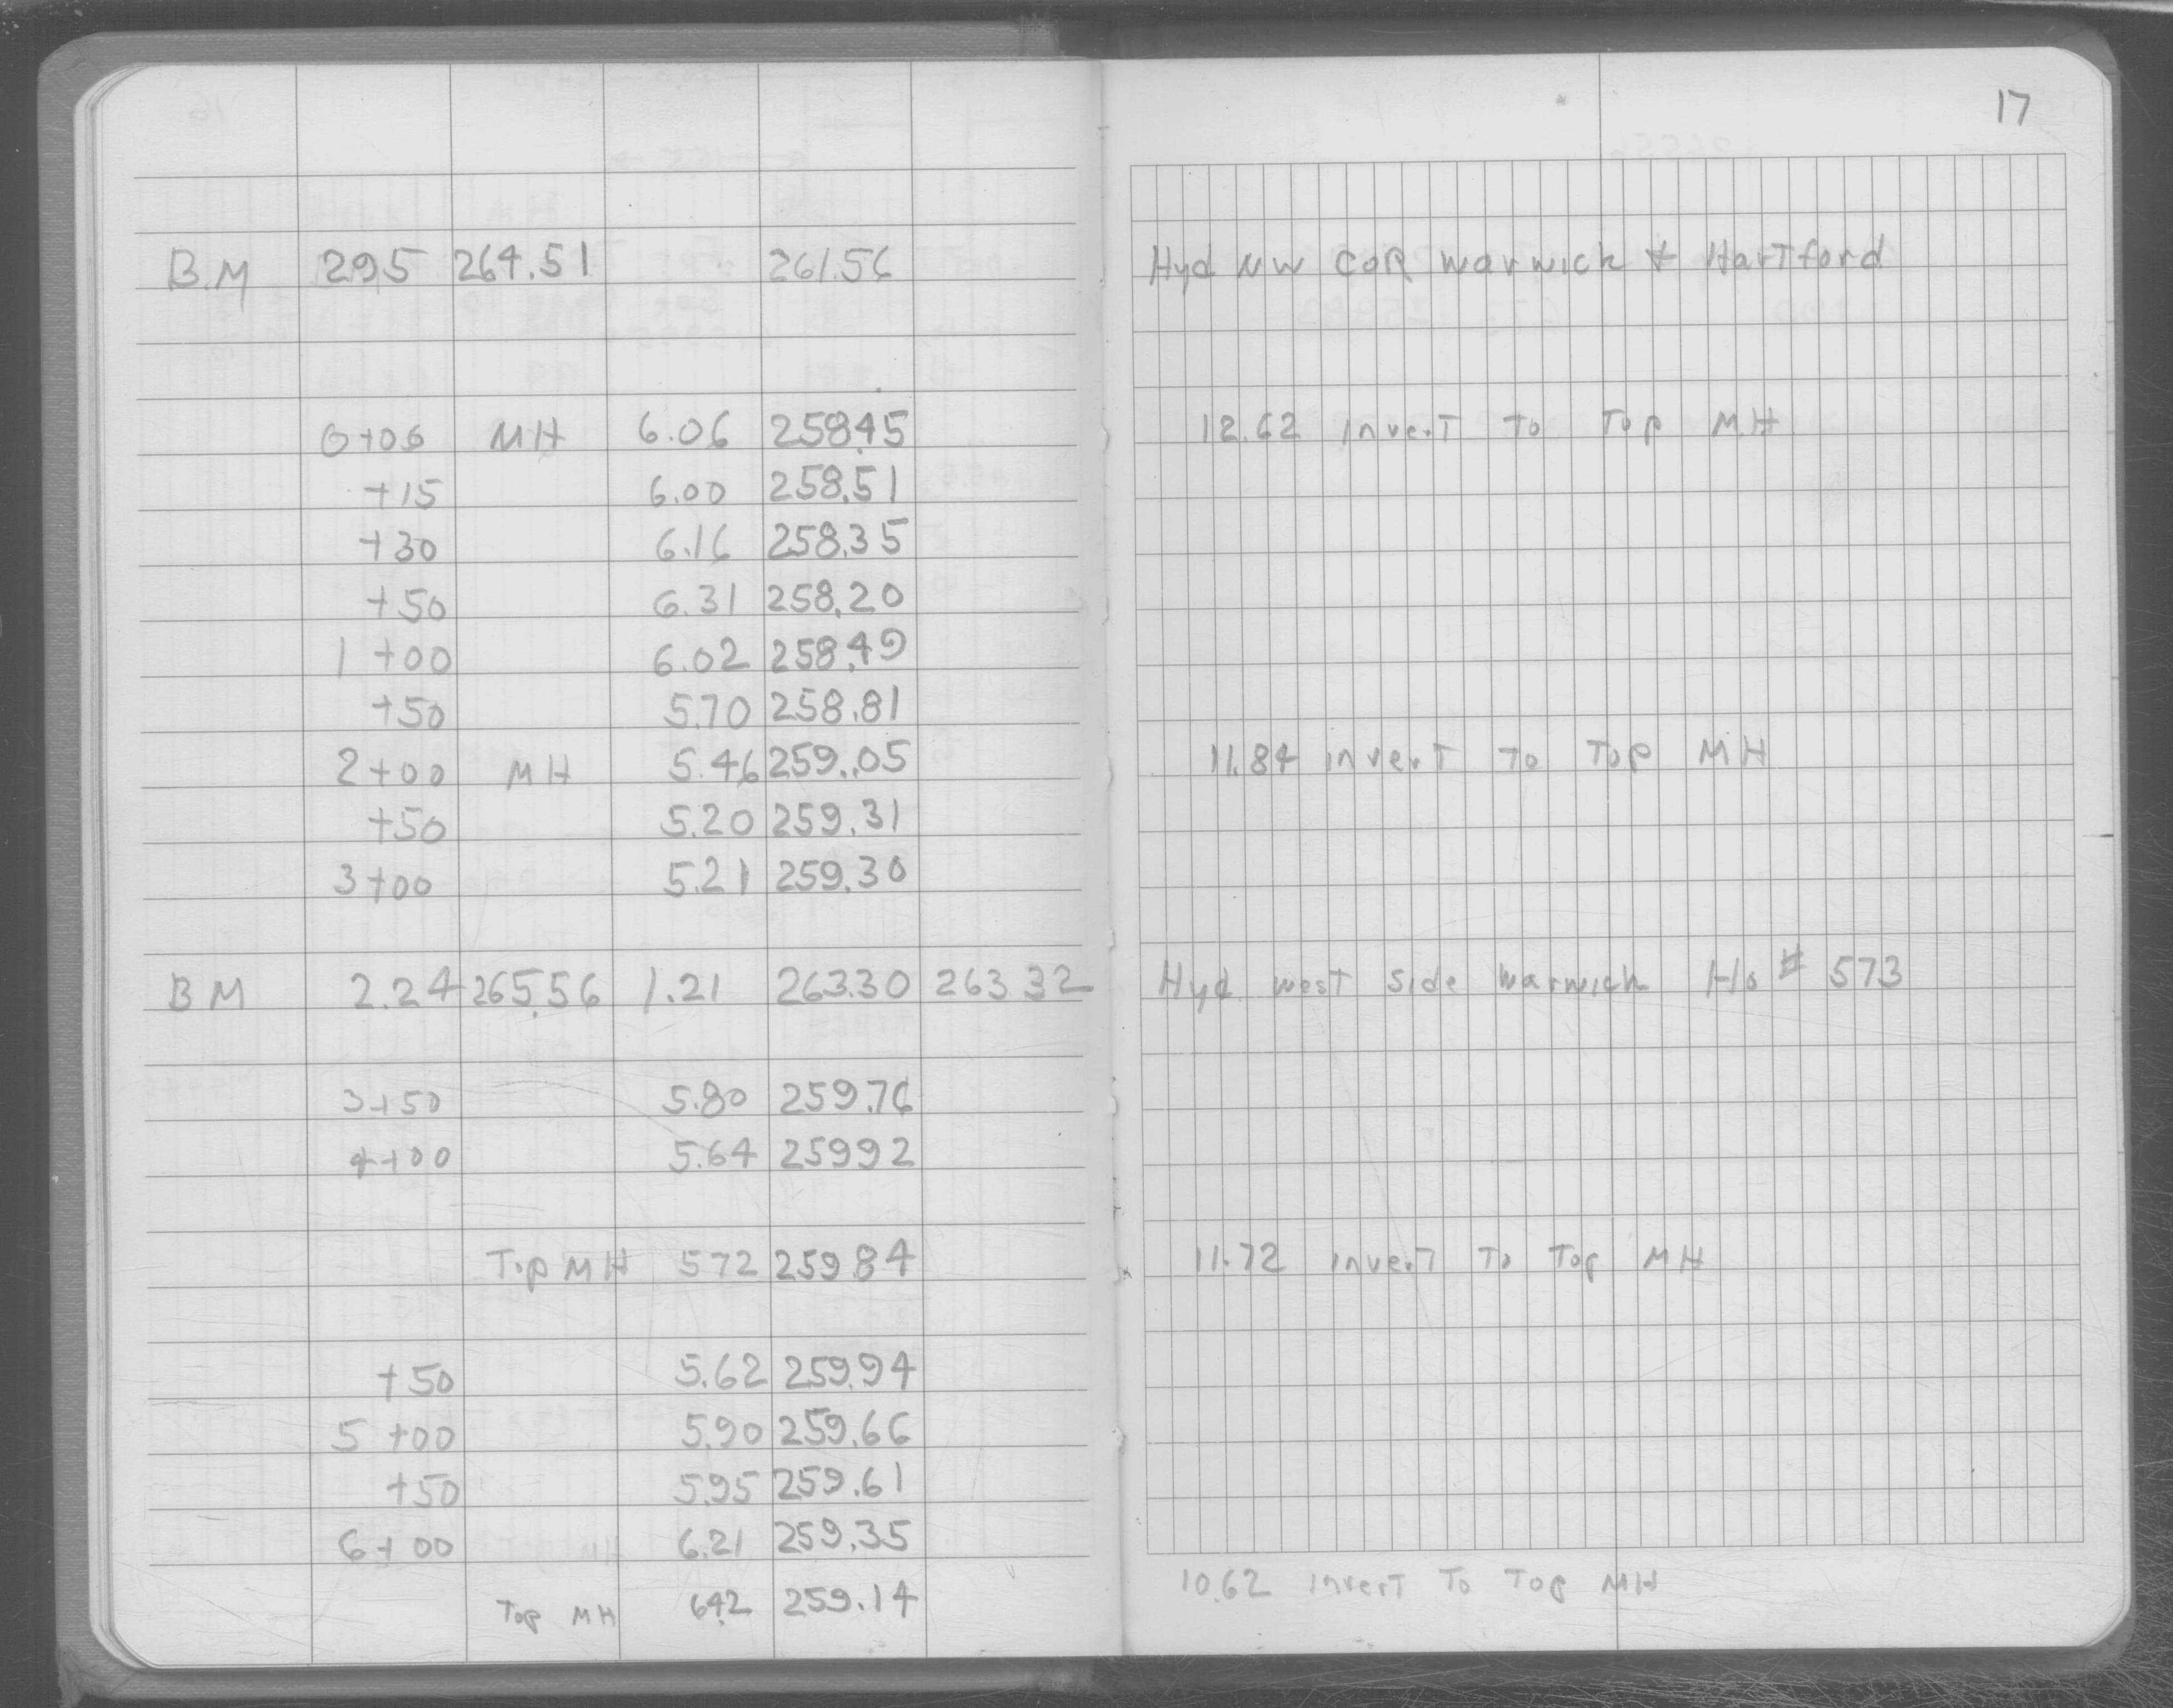 17
B.M 2.95 264.51 261.56 Hyd NW COR Warwick & Hartford
0+06 MH 6.06 258.45 12.62 invert To Top MH
+15 6.00 258.51
+30 6.16 258.35
+50 6.31 258.20
1+00 6.02 258.49
+50 5.70 258.81
2+00 MH 5.46 259.05 11.84 invert To Top MH
+50 5.20 259.31
3+00 5.21 259.30
BM 2.24 265.56 1.21 263.30 263.32 Hyd west side Warwick Ho # 573
3+50 5.80 259.76
4+00 5.64 259 92
Top MH 5 72 259 84 11.72 invert To Top MH
+50 5.62 259.94
5+00 5.90 259.66
+50 5.95 259.61
6+00 6.21 259.35
Top MH 6.42 259.14 10.62 invert To Top MH